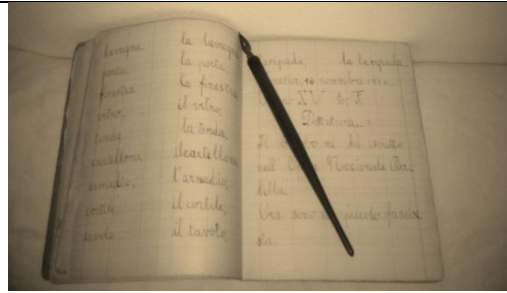 lavagna, la lavagna
porta, la porta
finestra la finestra
vetro, il vetro,
tenda la tenda,
cartellone, il cartellone
armadio, l'armadio,
cortile il cortile,
tavolo il tavolo,
lampada, la lampada
novembre
XV E. F.
Dettatura
mi ha
nell' Nazionale Ba
lilla.
sono un piccolo fasci
sta.